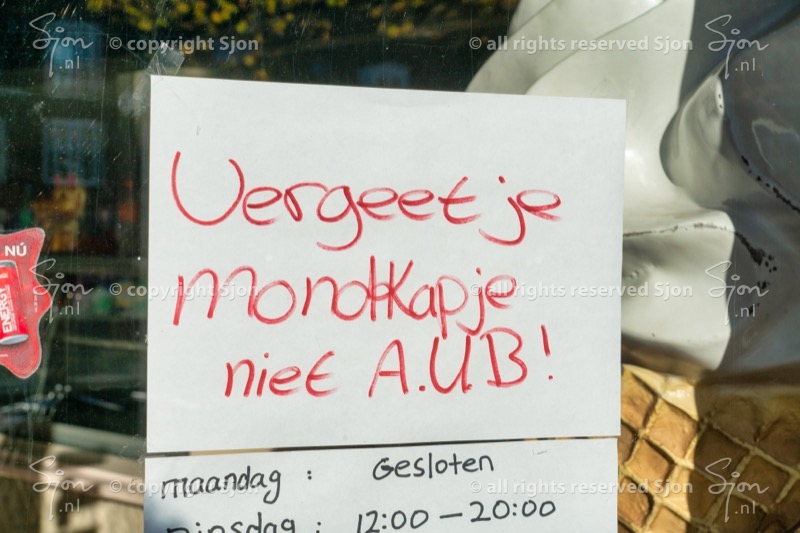 Sjon.nl © copyright Sjon © all rights reserved Sjon Sjon.nl
Vergeet je
NÚ
mondkapje
Sjon.nl © copyright Sjon © all rights reserved Sjon Sjon.nl
ENERGY
niet A.U.B!
maandag : Gesloten
Sjon.nl © copyright Sjon © all rights reserved Sjon Sjon.nl
Dinsdag : 12:00 – 20:00